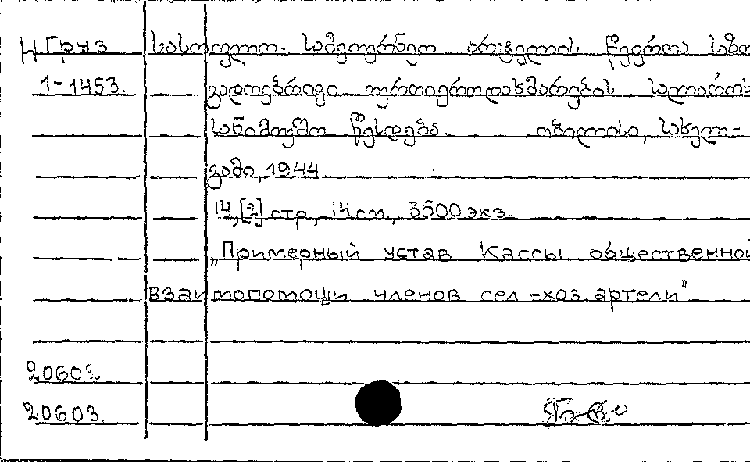 Ч Груз სასოფლო-სამეურნეო არტელის წევრთა საზო
1-1453. გადოებრივი ურთიერთდახმარების სალაროს
სანიმუშო წესდება თბილისი, სახელ-
გამი, 1944
14, [2] стр., 14 см, 3500 экз.
"Примерный устав Кассы общественной
взаимопомощи членов сел-хоз. артели"
20602
20603.